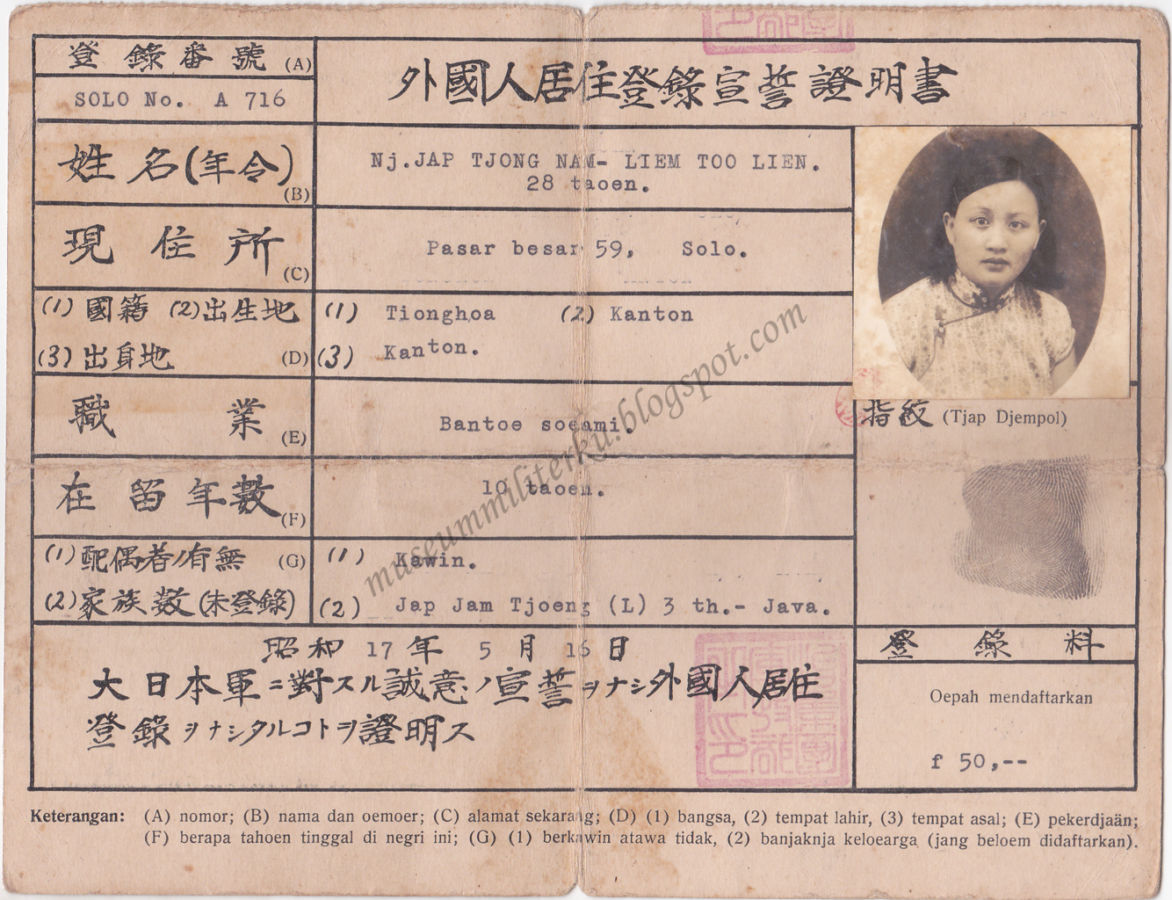 登錄番號 (A)
SOLO No. A 716
外國人居住登錄宣誓證明書
姓名(年令) (B)
Nj.JAP TJONG NAM- LIEM TOO LIEN.
28 taoen.
現住所 (C)
Pasar besar 59, Solo.
(1) 國籍 (2) 出生地
(3) 出身地 (D)
(1) Tionghoa (2) Kanton
(3) Kanton.
職業 (E)
Bantoe soeami.
指紋 (Tjap Djempol)
在留年數 (F)
10 taoen.
(1) 配偶者ノ有無 (G)
(2) 家族數(未登錄)
(1) Kawin.
(2) Jap Jam Tjoeng (L) 3 th.- Java.
昭和 17 年 5 月 16 日
大日本軍ニ對スル誠意ノ宣誓ヲナシ外國人居住
登錄ヲナシタルコトヲ證明ス
登錄料
Oepah mendaftarkan
f 50,--
Keterangan: (A) nomor; (B) nama dan oemoer; (C) alamat sekarang; (D) (1) bangsa, (2) tempat lahir, (3) tempat asal; (E) pekerdjaän;
(F) berapa tahoen tinggal di negri ini; (G) (1) berkawin atawa tidak, (2) banjaknja keloearga (jang beloem didaftarkan).
museummiliterku.blogspot.com